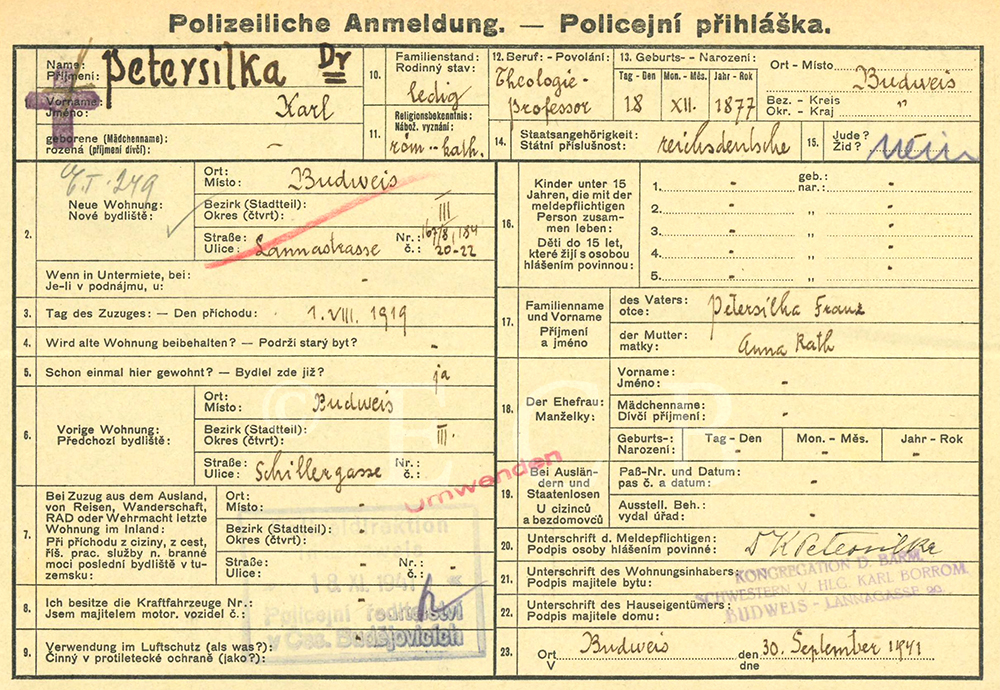 Polizeiliche Anmeldung. — Policejní přihláška.
1. Name: Příjmení: Petersilka Dr
Vorname: Jméno: Karl
geborene (Mädchenname): rozená (příjmení dívčí): -
10. Familienstand: Rodinný stav: ledig
11. Religionsbekenntnis: Nábož. vyznání: röm.-kath.
12. Beruf - Povolání: Theologie-
professor
13. Geburts- - Narození:
Tag - Den Mon. - Měs. Jahr - Rok
18 XII. 1877
Ort - Místo Budweis
Bez. - Kreis Okr. - Kraj "
14. Staatsangehörigkeit: Státní příslušnost: reichsdeutsche
15. Jude? Žid? nein
2. Neue Wohnung: Nové bydliště:
Ort: Místo: Budweis
Bezirk (Stadtteil): Okres (čtvrt): III
Straße: Ulice: Lannastrasse Nr.: č.: 167/8, 184
20-22
Wenn in Untermiete, bei: Je-li v podnájmu, u: -
3. Tag des Zuzuges: — Den příchodu: 1. VIII. 1919
4. Wird alte Wohnung beibehalten? — Podrží starý byt? -
5. Schon einmal hier gewohnt? — Bydlel zde již? ja
6. Vorige Wohnung: Předchozí bydliště:
Ort: Místo: Budweis
Bezirk (Stadtteil): Okres (čtvrt): III.
Straße: Ulice: Schillergasse Nr.: č.: -
Umwenden
7. Bei Zuzug aus dem Ausland,
von Reisen, Wanderschaft,
RAD oder Wehrmacht letzte
Wohnung im Inland:
Při příchodu z ciziny, z cest,
říš. prac. služby n. branné
moci poslední bydliště v tu-
zemsku:
Ort: Místo: -
Bezirk (Stadtteil): Okres (čtvrt): -
Straße: Ulice: - Nr.: č.: -
18. XI. 1941
Policejní ředitelství
v Čes. Budějovicích
8. Ich besitze die Kraftfahrzeuge Nr.:
Jsem majitelem motor. vozidel č.:
9. Verwendung im Luftschutz (als was?):
Činný v protiletecké ochraně (jako?):
16. Kinder unter 15
Jahren, die mit der
meldepflichtigen
Person zusam-
men leben:
Děti do 15 let,
které žijí s osobou
hlášením povinnou:
1. - geb.: nar.: -
2. - „ -
3. - „ -
4. - „ -
5. - „ -
17. Familienname
und Vorname
Příjmení
a jméno
des Vaters: otce: Petersilka Franz
der Mutter: matky: Anna Rath
18. Der Ehefrau: Manželky:
Vorname: Jméno: -
Mädchenname: Dívčí příjmení: -
Geburts-: Narození: Tag - Den Mon. - Měs. Jahr - Rok
- - -
19. Bei Auslän-
dern und
Staatenlosen
U cizinců
a bezdomovců
Paß-Nr. und Datum: pas č. a datum: -
Ausstell. Beh.: vydal úřad: -
20. Unterschrift d. Meldepflichtigen: Podpis osoby hlášením povinné: Dr K Petersilka
21. Unterschrift des Wohnungsinhabers: Podpis majitele bytu:
22. Unterschrift des Hauseigentümers: Podpis majitele domu:
KONGREGATION D. BARM.
SCHWESTERN V. HLG. KARL BORROM.
BUDWEIS - LANNAGASSE 20.
23. Ort V Budweis den dne 30. September 1941
© ECB